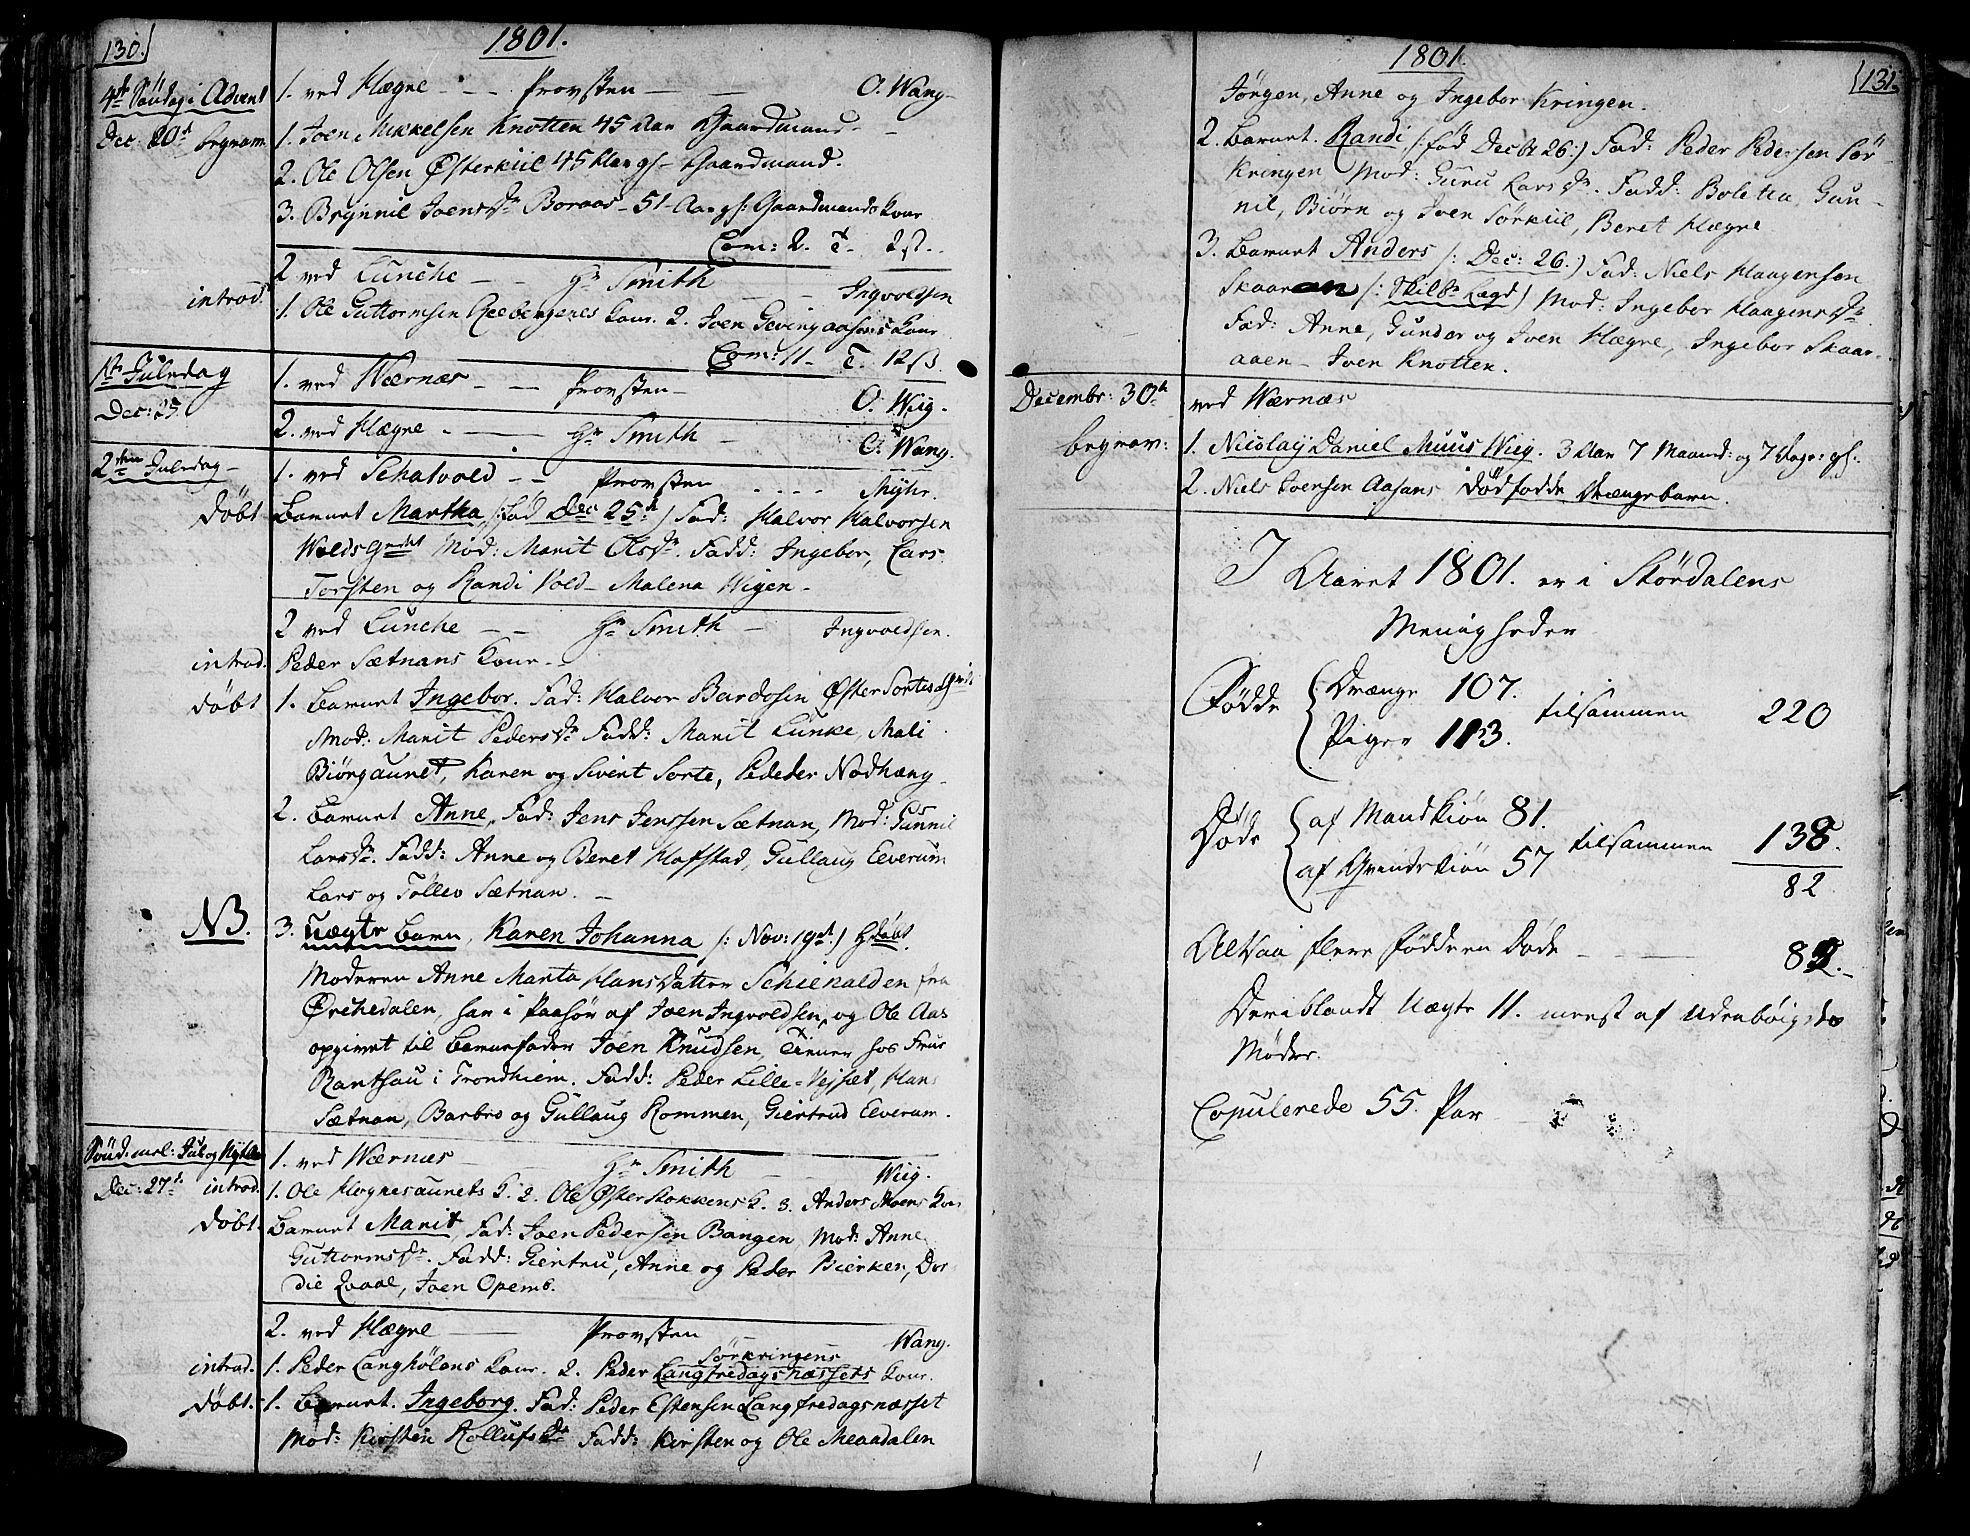 130.
1801.
4de Søndag i Advent
1. ved Hægre - - - Provsten - - O. Wang-
Dec: 20de begravn
1. Joen Mikkelsen Knotten 45 Aar Gaardmand -
2. Ole Olsen Østerkiil 45 Aar gl- Gaardmand.
3. Brynnil Joensdr Boraas - 51- Aar gl: Gaardmands Kone
Com: 2. T-
2 ved Lunche - - Hr Smith - - Ingvoldsen
introd.
1. Ole Guttormsen Reebergenes Kone. 2. Joen Gevingaasens Kone
Com: 11- T. 12 ß.
1ste Juledag
1. ved Wærnæs - - Provsten - O. Wiig.
Dec: 25.
2. ved Hægre - - Hr Smith - O. Wang.
2den Juledag -
1. ved Schatvold - - Provsten - - - - Myhr.
døbt
Barnet Martha /: fød Dec 25de /) Fad: Halvor Halvorsen
Woldsgrdet Mod: Marit Olsdr. Fadd: Ingebor, Lars
Torsten og Randi Vold - Malena Wigen -
2 ved Lunche - - Hr Smith - Ingvoldsen.
introd.
Peder Sætnans Kone -
døbt
1. Barnet Ingebor. Fad: Halvor Bardosen Øster Sorte
Mod: Marit Pedersdr Fadd: Marit Lunke, Mali
Biørgaunet, Karen og Sivert Sorte, Pededer Nodhæng-
2. Barnet Anne, Fad: Jens Jenssen Sætnan, Mod: Gunnil
Larsdr. Fadd: Anne og Beret Hofstad, Gullaug Elverum
Lars og Tollev Sætnan. -
NB.
3. Uægte Barn, Karen Johanna /: Nov: 19de /) Hdøbt
Moderen Anne Marta Hansdatter Schienalden fra
Ørchedalen, som i Paasør af Joen Ingvoldsen, og Ole Aas
opgivet til Barnefader Joen Knudsen, Tiener hos Frue
Rantsau i Trondhiem. Fadd: Peder Lille-Vejset, Hans
Sætnan, Barbro og Gullaug Rommen, Giertrud Elverum.
Sønd. mel: Jul og Nytaar
1. ved Wærnæs - Hr Smith - - Wiig.
Dec: 27de introd.
1. Ole Hognesaunets K. 2. Ole Østerstokkens K. 3. Anders Moens Kone
døbt.
Barnet Marit, Fad: Joen Pedersen Bangen Mod: Anne
Guttormsdr. Fadd: Giertru, Anne og Peder Bierken, Dor
die Qvaal, Joen Opemb.
2. ved Hægre - Provsten Wang.
introd.
1. Peder Langhølens Kone. 2. Peder Sørkringens Langfredagsnæssets Kone.
døbt.
1. Barnet. Ingeborg. Fad: Peder Estensen Langfredagsnæsset
Mod: Kirsten Rollufsdr Fadd: Kirsten og Ole Meaadalen
1801.
131.
Jørgen, Anne og Ingebor Kringen.
2. Barnet. Randi /: fød Decbr 26:) Fad: Peder Pedersen Sør
Kringen Mod: Guru Larsdr. Fadd: Boletta, Gun-
nil, Biørn og Joen Sørkiil, Beret Hægre
3. Barnet Anders /: Dec: 26:) Fad: Niels Haagensen
Skaaraaen /: Skilbr Lægd) Mod: Ingebor Haagensdr
Fad: Anne, Gunder og Joen Hægre, Ingebor Skaar-
aaen - Joen Knotten.
Decembr: 30te
ved Wærnæs
begrav:
1. Nicolaij Daniel Muus Wiig. 3 Aar 7 Maaned: og 7 Dage: gl.
2. Niels Joensen Aasans dødfødde Drængebarn.
I Aaret 1801. er i Størdalens
Menigheder
Fødde
Drænge 107.
Piger 113.
tilsammen 220
Døde
af Mandkiøn 81.
af Qvindekiøn 57
tilsammen 138.
82
Altsaa flere fødde en døde - - - 82.-
Deriblandt Uægte 11. meest af Udenbøigdte
Mødre.
Copulerede 55. Par